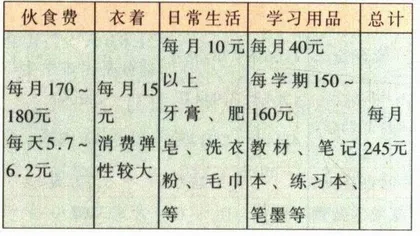 伙食费 衣着 日常生活 学习用品 总计
每月170~
180元
每天5.7~
6.2元
每月15
元
消费弹
性较大
每月10元
以上
牙膏、肥
皂、洗衣
粉、毛巾
等
每月40元
每学期150~
160元
教材、笔记
本、练习本、
笔墨等
每月
245元